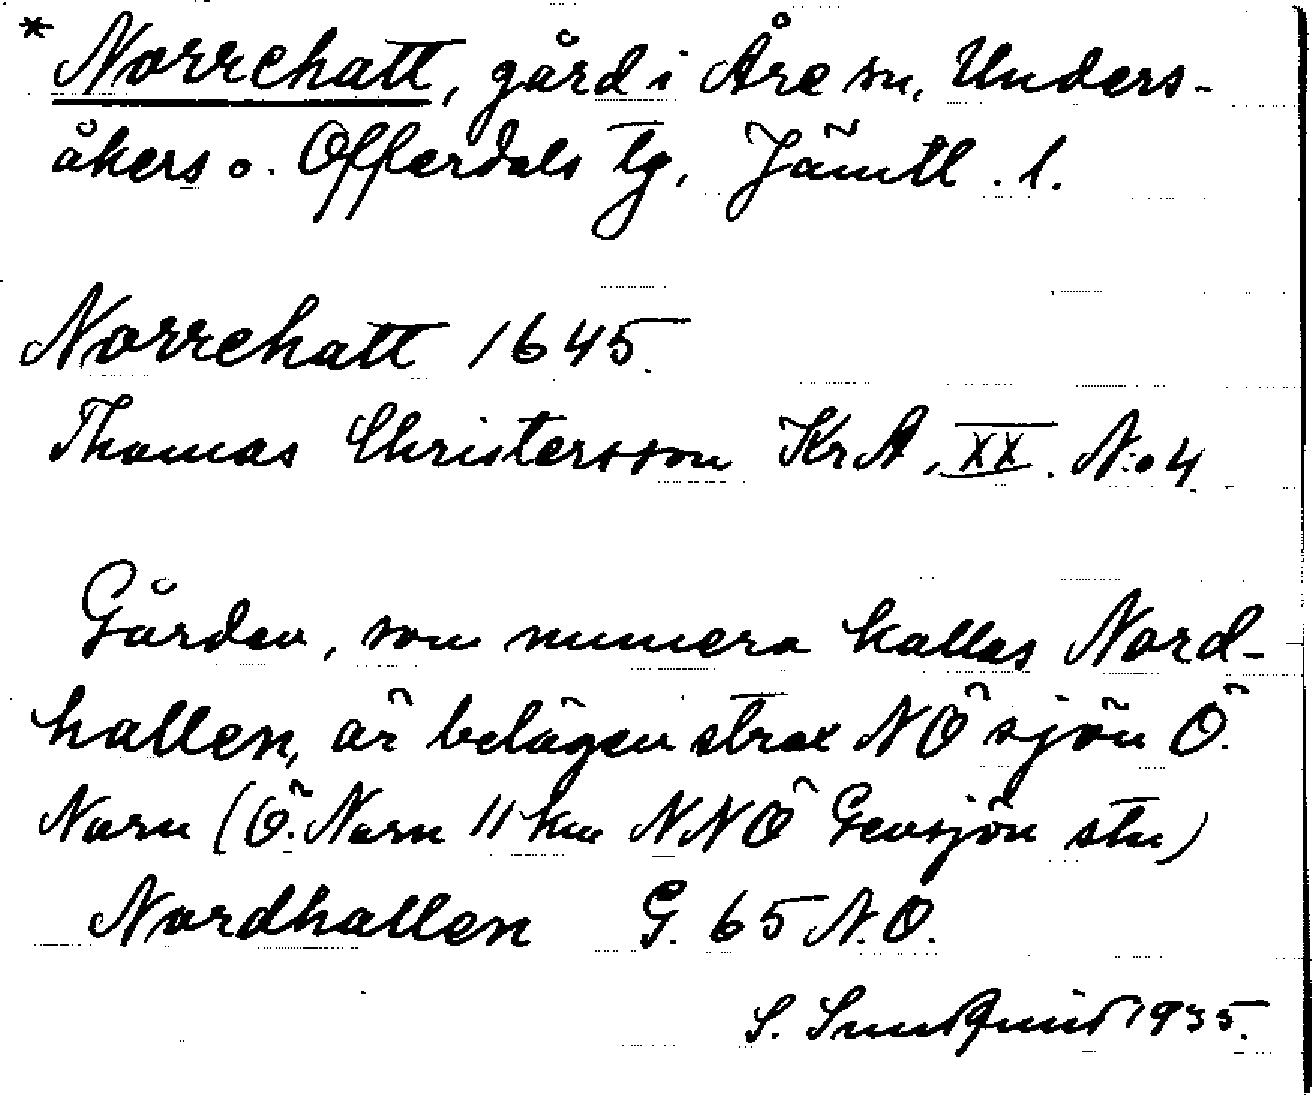 * Norrehatt, gård i Åre sn, Unders-
åkers o. Offerdals tg, Jämtl. l.
Norrehatt 1645.
Thomas Christersson KrA, XX. N:o 4
Gården, som numera kallas Nord-
hallen, är belägen strax NÖ sjön Ö.
Norn (Ö. Norn 11 km NNÖ Gevsjön stn)
Nordhallen G. 65 N.O.
S. Sundquist 1935.